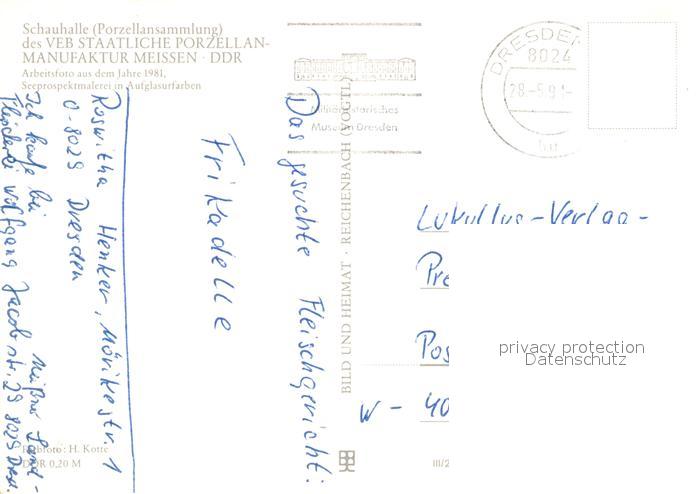 Schauhalle (Porzellansammlung)
des VEB STAATLICHE PORZELLAN-
MANUFAKTUR MEISSEN · DDR
Arbeitsfoto aus dem Jahre 1981,
Seeprospektmalerei in Aufglasurfarben
Militärhistorisches
Museum Dresden
DRESDEN
8024
28.-5.91-
Das gesuchte Fleischgericht:
Frikadelle
Roswitha Henker, Mörikestr. 1
O-8029 Dresden
Ich kaufe bei
Meißner Land-
Fleischerei Wolfgang Jacobstr. 29 8029 Dresd.
BILD UND HEIMAT · REICHENBACH (VOGTL)
Lukullus-Verlag-
Pre
Pos
W - 40
privacy protection
Datenschutz
Farbfoto: H. Kotte
DDR 0,20 M
III/2